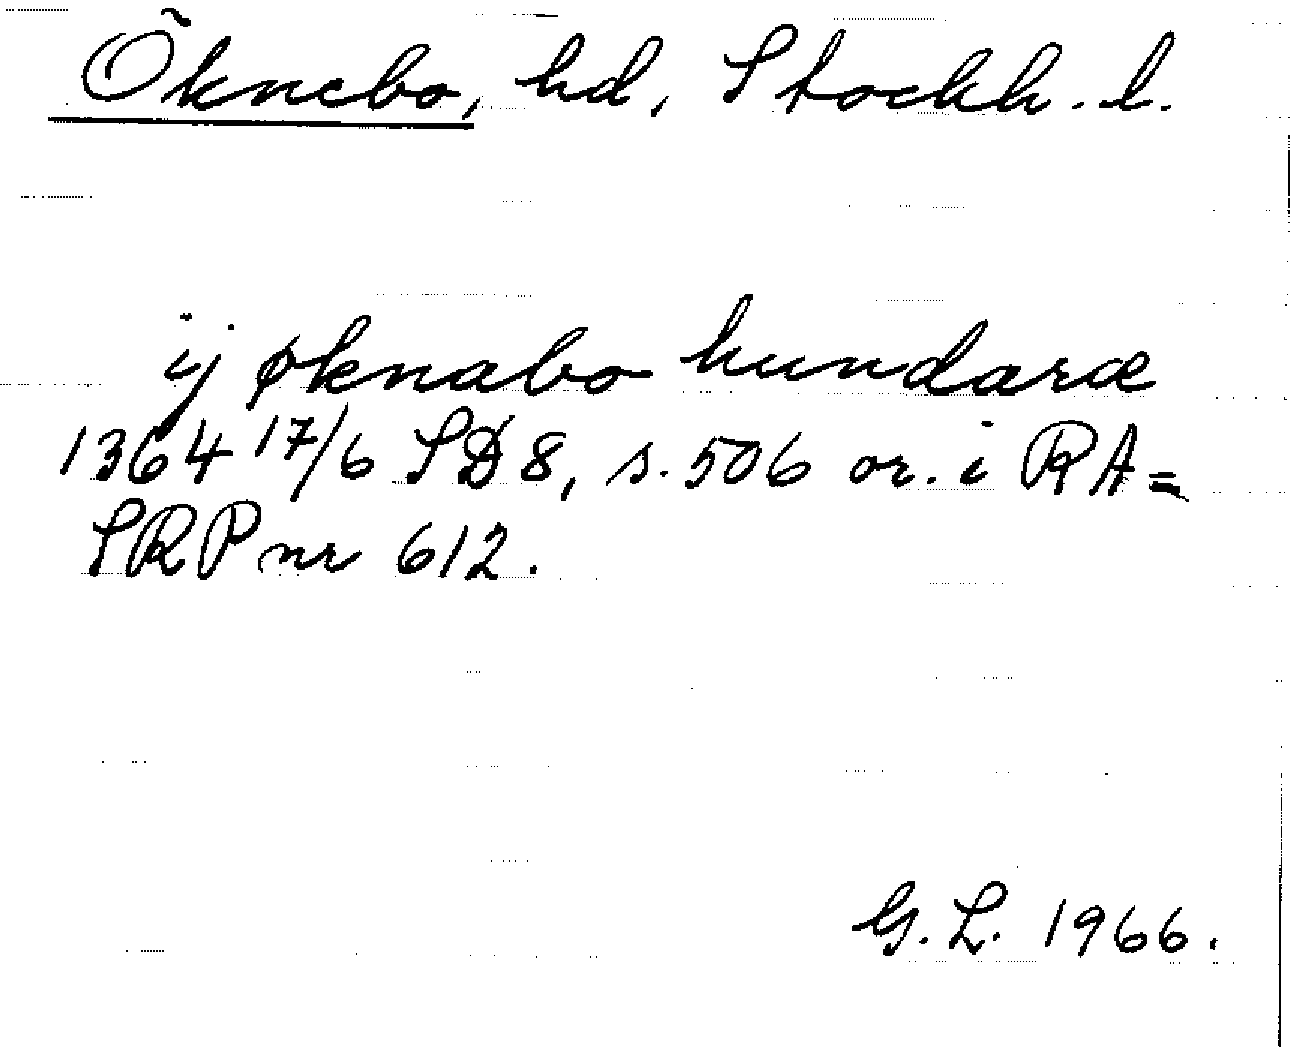 Öknebo, hd, Stockh. l.
ij øknabo hundaræ
1364 17/6 SD 8, s. 506 or. i RA =
SRP nr 612.
G. L. 1966.